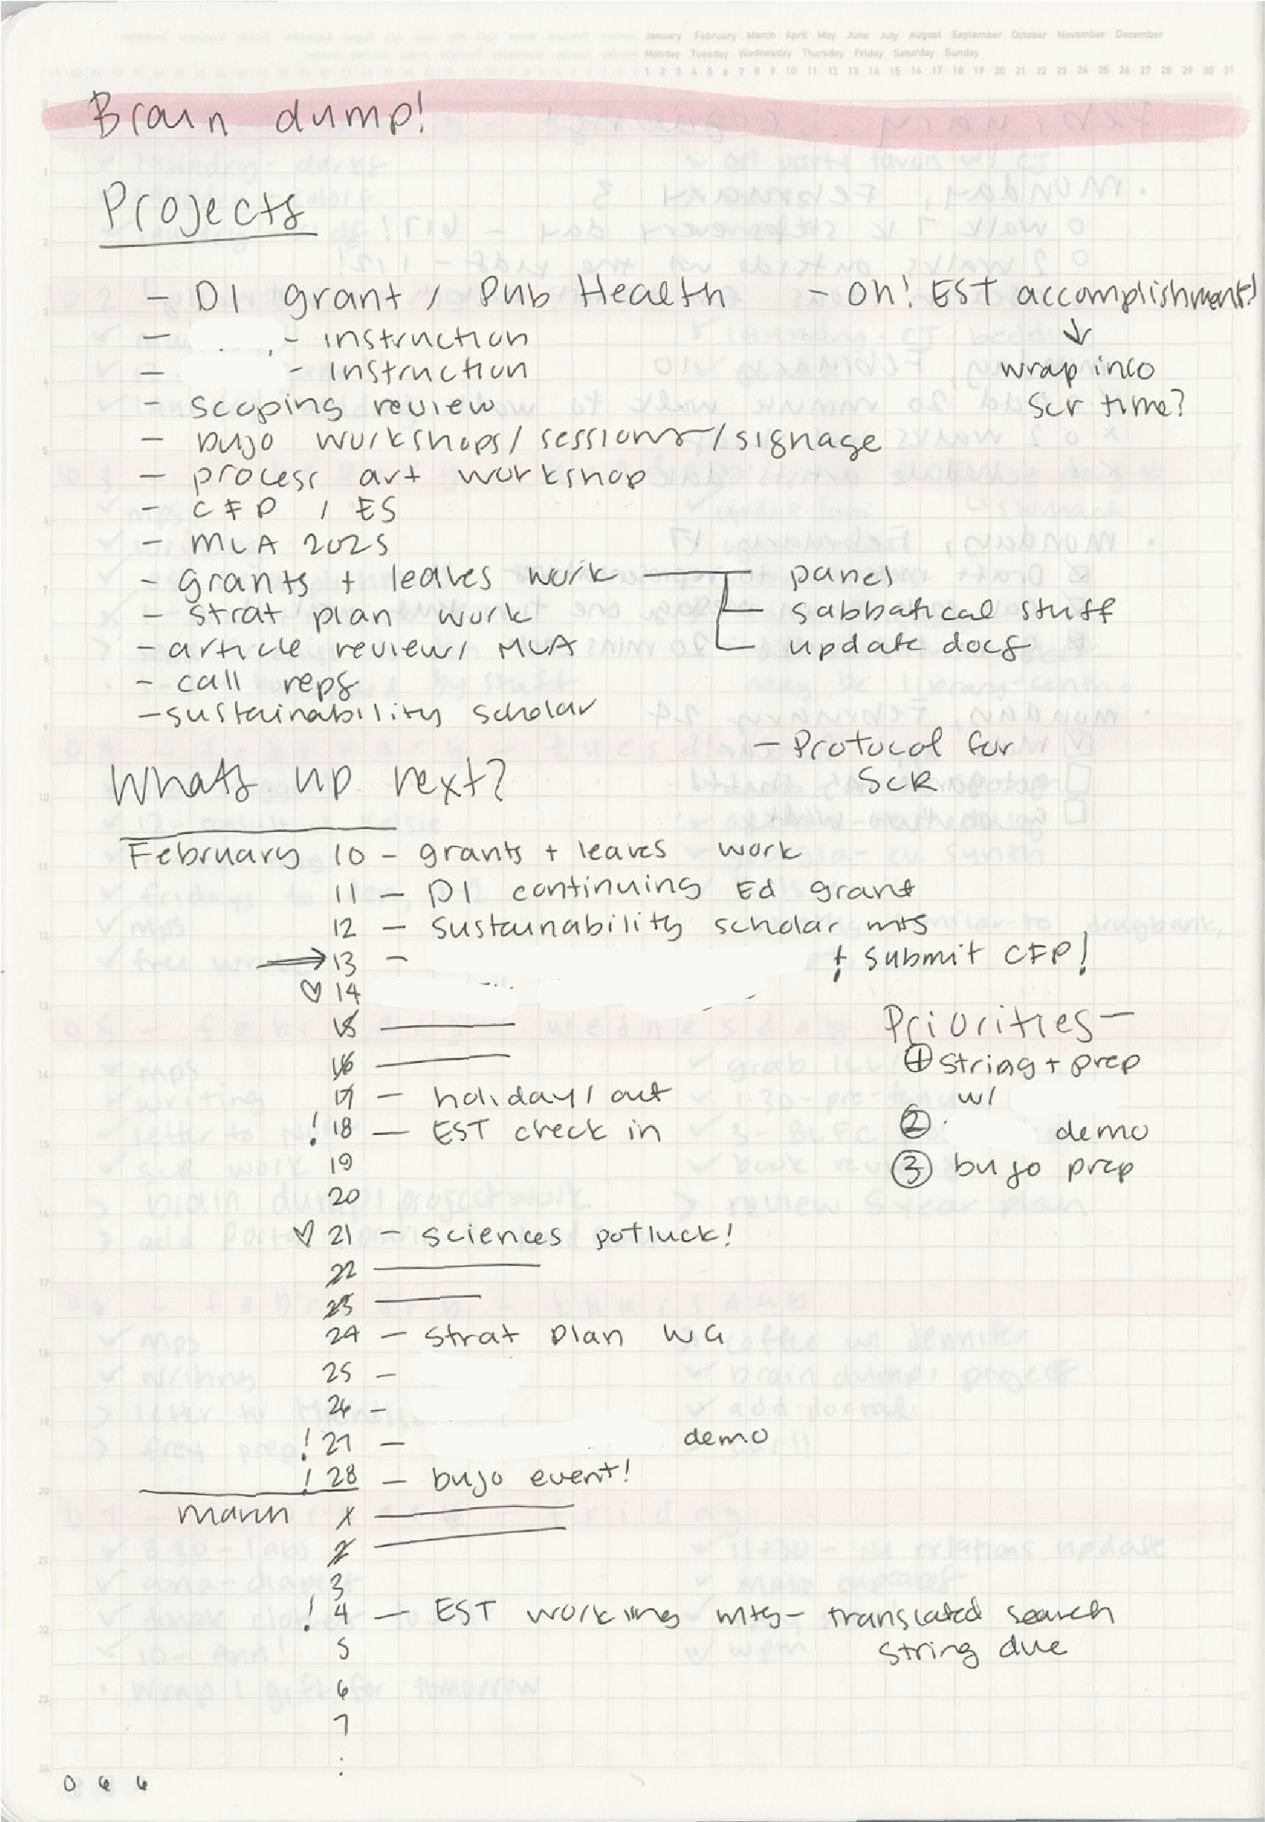 January February March April May June July August September October November December
Monday Tuesday Wednesday Thursday Friday Saturday Sunday
1 2 3 4 5 6 7 8 9 10 11 12 13 14 15 16 17 18 19 20 21 22 23 24 25 26 27 28 29 30 31
Brain dump!
Projects
- DI grant / Pub Health - Oh! EST accomplishment!
↓
wrap into
Scr time?
- - instruction
- - instruction
- scoping review
- bujo workshops/sessions/signage
- process art workshop
- CFP / ES
- MLA 2025
- grants + leaves work - panel
- sabbatical stuff
- update docs
- strat plan work
- article review/ MLA
- call reps
- sustainability scholar
- Protocol for
SCR
Whats up next?
February 10 - grants + leaves work
11 - DI continuing Ed grant
12 - sustainability scholar mtg
→ 13 - + submit CFP!
♡ 14
15
16
17 - holiday/out
! 18 - EST check in
19
20
♡ 21 - sciences potluck!
22
23
24 - strat plan WG
25 -
26 -
! 27 - demo
! 28 - bujo event!
Priorities -
① string + prep
w/
② demo
③ bujo prep
March 1
2
3
! 4 - EST working mtg - translated search
string due
5
6
7
066